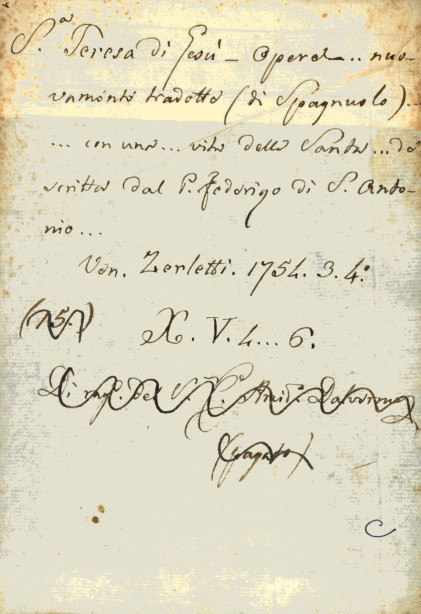 S.ª Teresa di Gesù - Opere ... nuo-
vamente tradotte (di Spagnuolo) ...
... con una ... vita della Santa ... de
scritta dal P. Federigo di S. Anto-
nio ...
Ven. Zerletti. 1754. 3. 4.º
(15.)
X. V. 4 ... 6.
Di rag. del S.
(pagato)
C